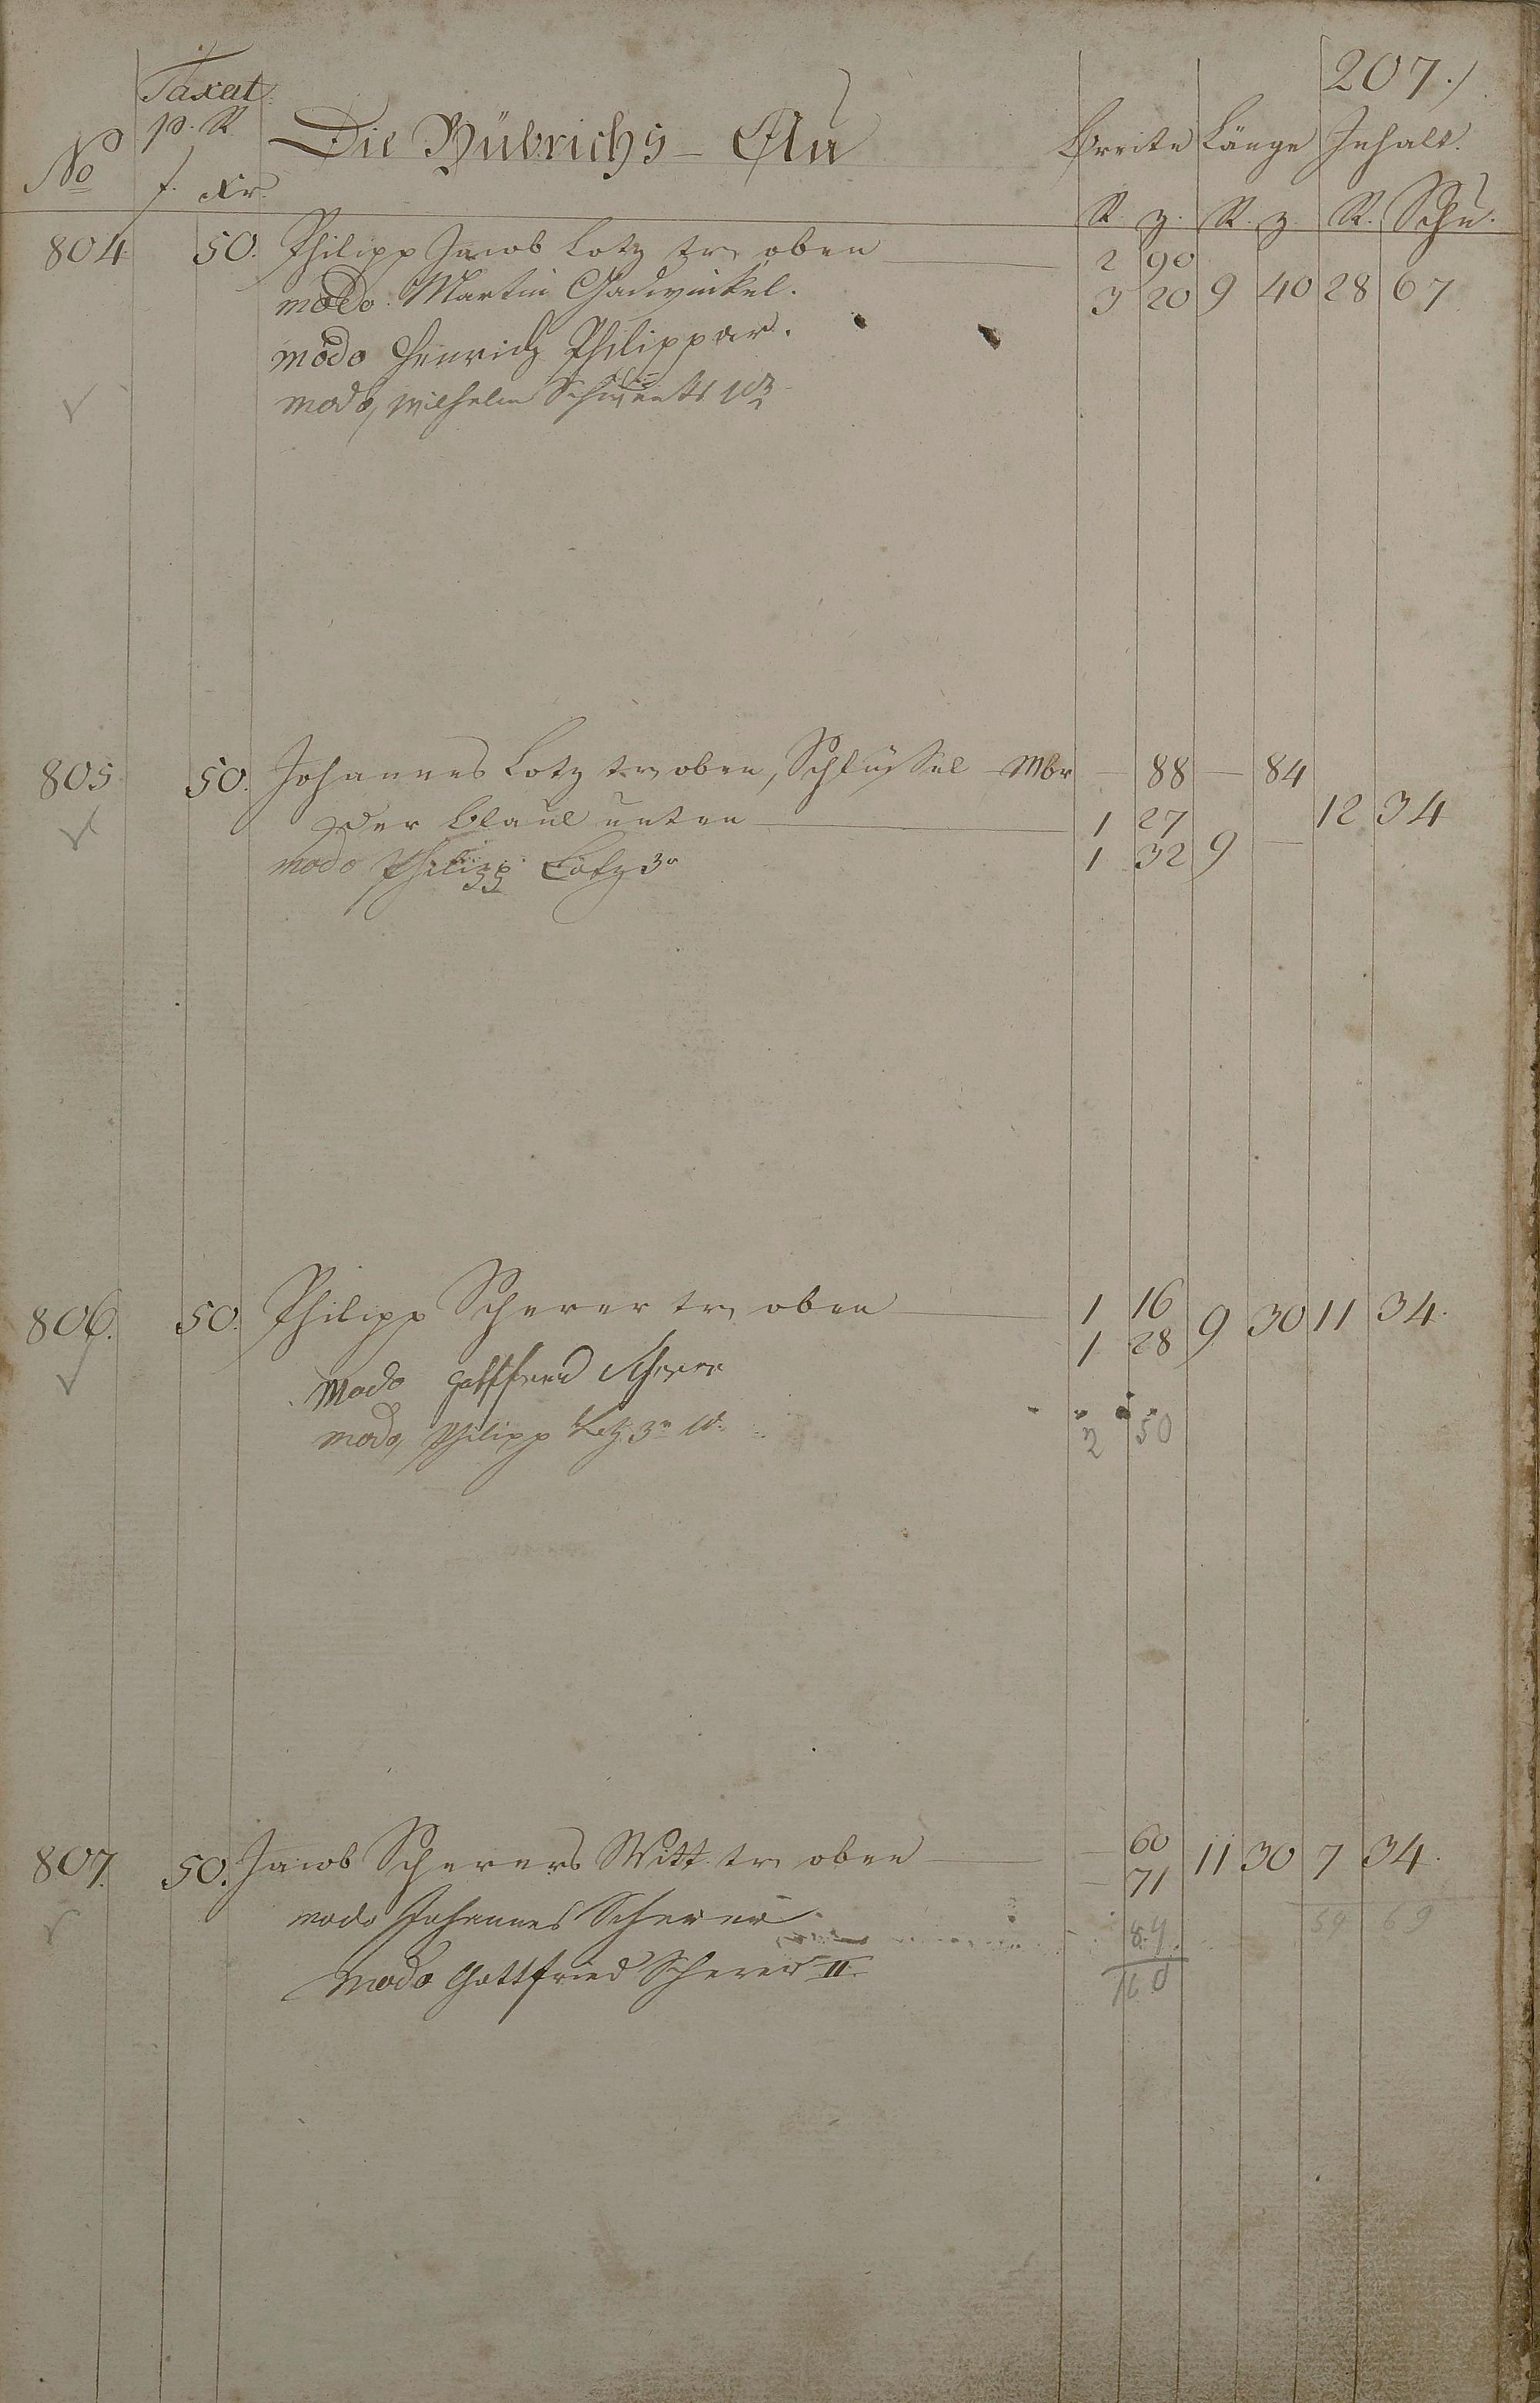 207.
Taxat.
p. R
No f. Xr. Die Bübrichs-Au Breite Länge Inhalt.
R. z. R. z. R. Schu.
804 50. Philipp Jacob Lotz tr. oben 2 90
modo Martin Gadwinkel. 3 20 9 40 28 67
modo Henrich Philippar.
modo, Wilhelm
805 50. Johannes Lotz tr. oben, Schlüssel Mbr — 88 — 84
der blaul unten 1 27 12 34
modo Philipp Lotz 3r 1 32 9 —
806. 50. Philipp Scherer tr. oben 1 16 9 30 11 34.
1 28
modo Gottfried Scherer
modo, Philipp Lotz 3r W. 2 50
807. 50. Jacob Scherers Witt. tr. oben — 60 11 30 7 34.
— 71
modo Johannes Scherer 84 59 69
modo Gottfried Scherer II. 160